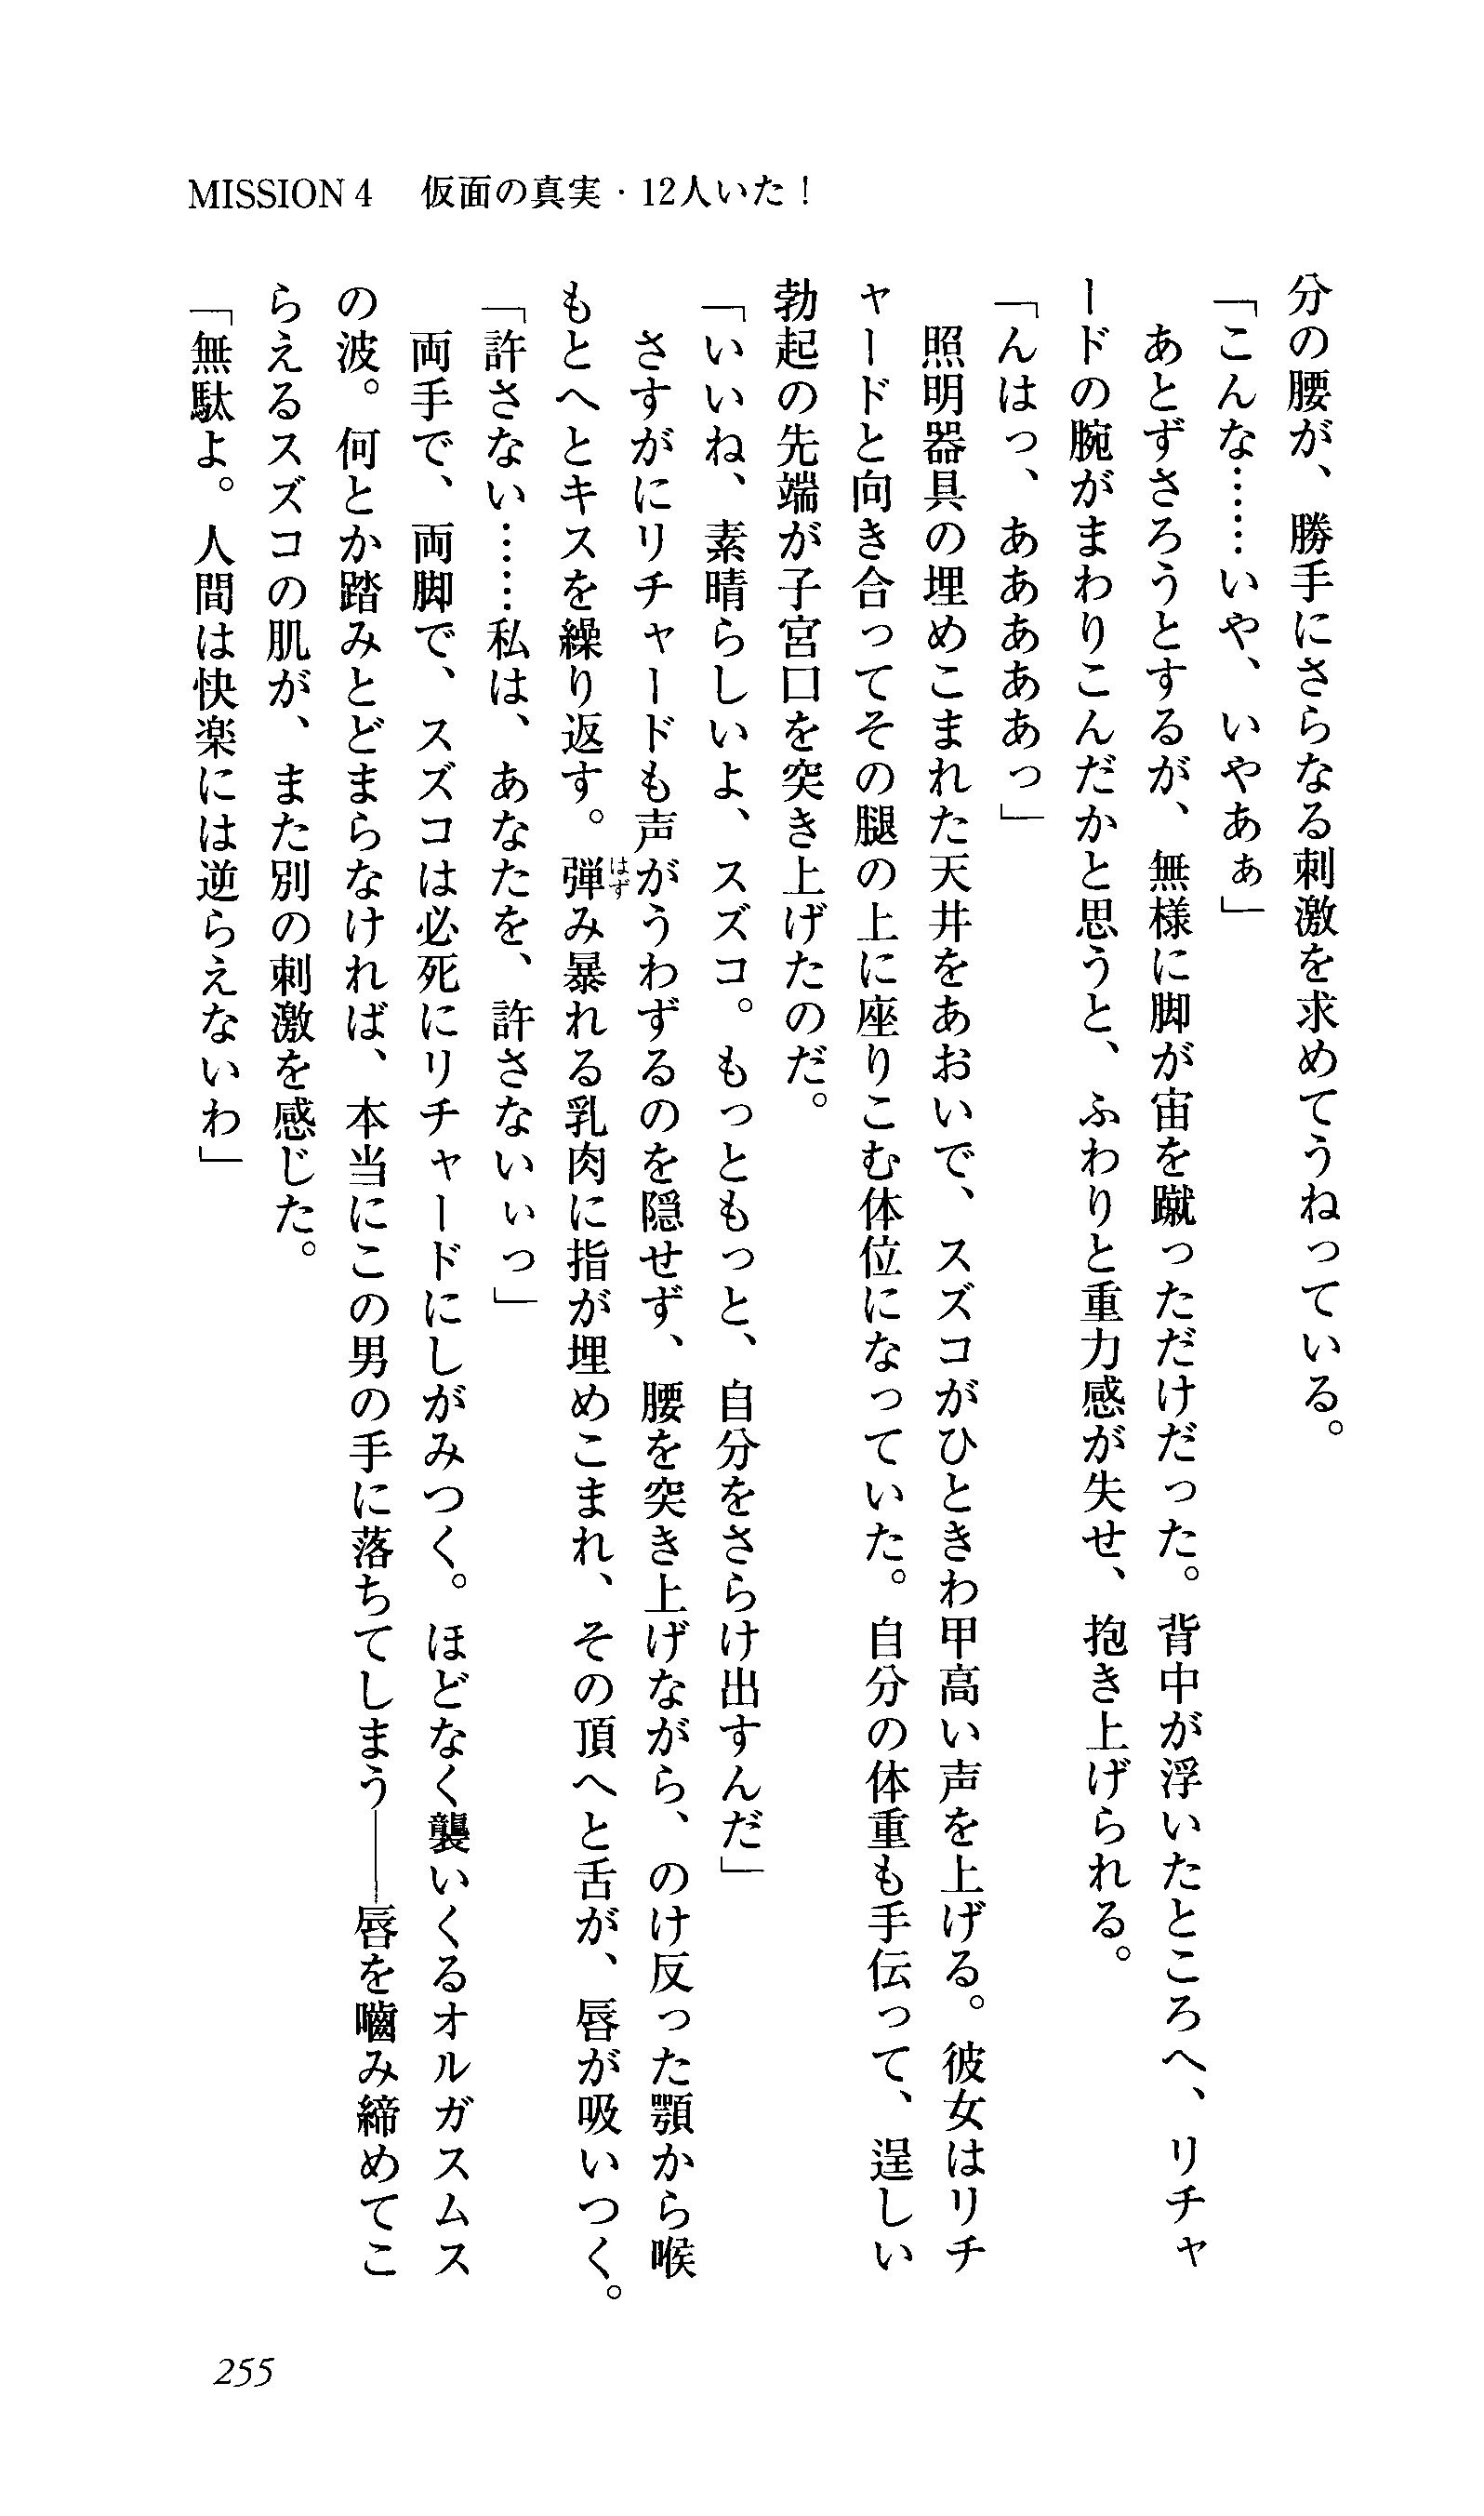 MISSION 4　仮面の真実・12人いた！
分の腰が、勝手にさらなる刺激を求めてうねっている。
「こんな……いや、いやあぁ」
　あとずさろうとするが、無様に脚が宙を蹴っただけだった。背中が浮いたところへ、リチャ
ードの腕がまわりこんだかと思うと、ふわりと重力感が失せ、抱き上げられる。
「んはっ、あああああっ」
　照明器具の埋めこまれた天井をあおいで、スズコがひときわ甲高い声を上げる。彼女はリチ
ャードと向き合ってその腿の上に座りこむ体位になっていた。自分の体重も手伝って、逞しい
勃起の先端が子宮口を突き上げたのだ。
「いいね、素晴らしいよ、スズコ。もっともっと、自分をさらけ出すんだ」
　さすがにリチャードも声がうわずるのを隠せず、腰を突き上げながら、のけ反った顎から喉
もとへとキスを繰り返す。弾み暴れる乳肉に指が埋めこまれ、その頂へと舌が、唇が吸いつく。
はず
「許さない……私は、あなたを、許さないぃっ」
　両手で、両脚で、スズコは必死にリチャードにしがみつく。ほどなく襲いくるオルガスムス
の波。何とか踏みとどまらなければ、本当にこの男の手に落ちてしまう――唇を嚙み締めてこ
らえるスズコの肌が、また別の刺激を感じた。
「無駄よ。人間は快楽には逆らえないわ」
255